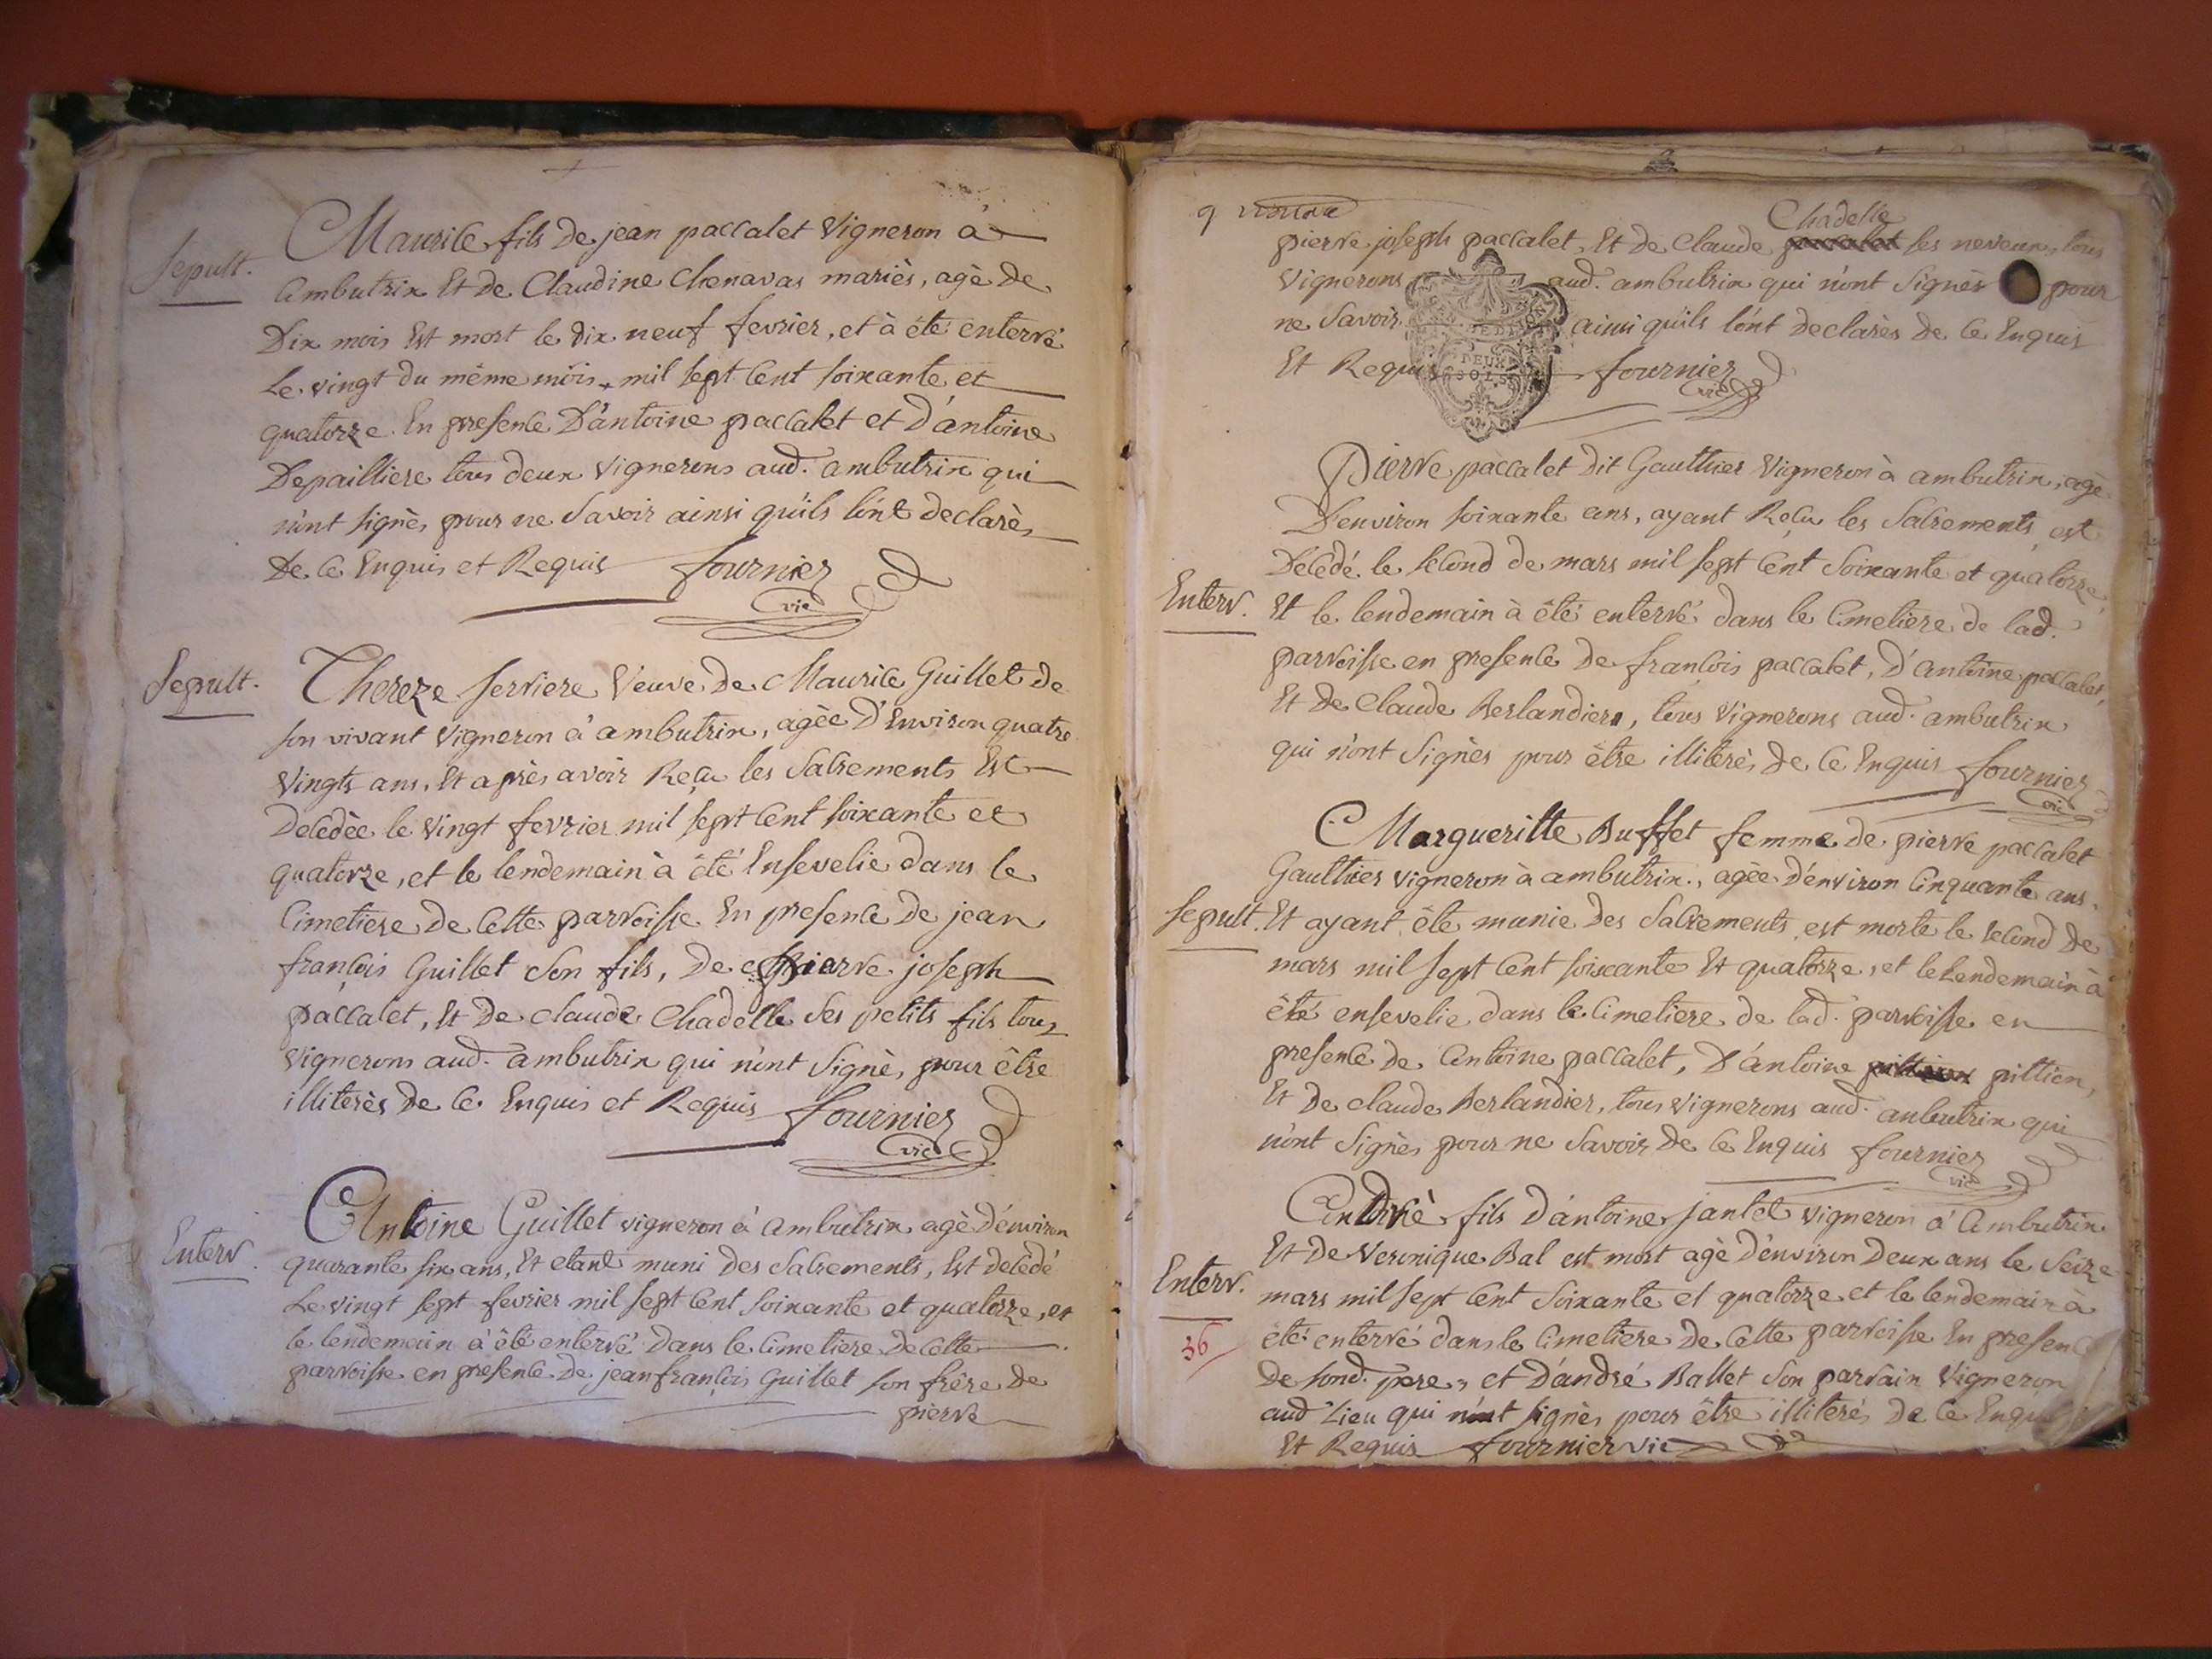 Sepult.
Maurice fils de jean paccalet Vigneron à
Ambutrix Et de Claudine Chenavas mariès, agè de
Dix mois Est mort le dix neuf fevrier, et à été enterré
Le vingt du même mois, mil sept Cent soixante et
quatorze. En presence D'antoine paccalet et D'antoine
Depailliere tous deux Vignerons aud. ambutrix qui
n'ont signès pour ne Savoir ainsi qu'ils l'ont declarès
De Ce Enquis et Requis fournier
vic
Sepult.
Thereze serriere Veuve de Maurice Guillet de
son vivant Vigneron à ambutrix, agèe D'Environ quatre
Vingts ans, Et après avoir Reçu les Sacrements Est
Decedèe le Vingt fevrier mil sept Cent soixante et
quatorze, et le lendemain à été Ensevelie dans le
Cimetiere de Cette parroisse En presence de jean
françois Guillet Son fils, de pierre joseph
paccalet, Et De claude Chadelle Ses petits fils tous
Vignerons aud. ambutrix qui n'ont Signè, pour être
illiterès De Ce Enquis et Requis fournier
vic
Enterr.
Antoine Guillet vigneron à ambutrix agè D'environ
quarante six ans, Et etant muni Des Sacrements, Est decedé
Le vingt sept fevrier mil sept Cent Soixante et quatorze, et
le lendemain à été enterré Dans le Cimetiere De Cette
parroisse en presence De jean françois Guillet son frère de
pierre
9
Chadelle
pierre joseph paccalet, Et de Claude paccalet ses neveux, tous
Vignerons aud. ambutrix qui n'ont Signès pour
ne Savoir ainsi qu'ils l'ont declarès de Ce Enquis
Et Requis fournier
vic
DEUX
SOLS
Pierre paccalet dit Gaulthier Vigneron à ambutrix, agè
D'environ soixante ans, ayant Reçu les Sacrements est
Decedé le second de mars mil sept Cent Soixante et quatorze,
Enterr. Et le lendemain à été enterré dans le Cimetiere de lad.
parroisse en presence de francois paccalet, D'antoine paccalet,
Et De Claude Berlandier, tous Vignerons aud. ambutrix
qui n'ont Signès pour être illiterès De Ce Enquis fournier
vic
Margueritte Buffet femme de pierre paccalet
Gaulthier vigneron à ambutrix, agèe d'environ Cinquante ans,
Sepult. Et ayant été munie des Sacrements est morte le second de
mars mil sept Cent soixante Et quatorze, et le Lendemain à
été ensevelie dans le Cimetiere de lad. parroisse en
presence de Antoine paccalet, D'antoine pittion,
Et De claude Berlandier, tous vignerons aud. anbutrix qui
n'ont Signès pour ne Savoir de Ce Enquis fournier
vic
Andrè fils D'antoine jantet vigneron à Ambutrix
Et De Veronique Bal est mort agè D'environ Deux ans le Seize
Enterr. mars mil sept Cent Soixante et quatorze et le lendemain à
été enterré dans le Cimetiere De Cette parroisse En presence
36
De sond. pere, et D'andré Ballet Son parrain Vigneron
aud. Lieu qui n'ont signès pour être illiterès De Ce Enquis
Et Requis fournier vic